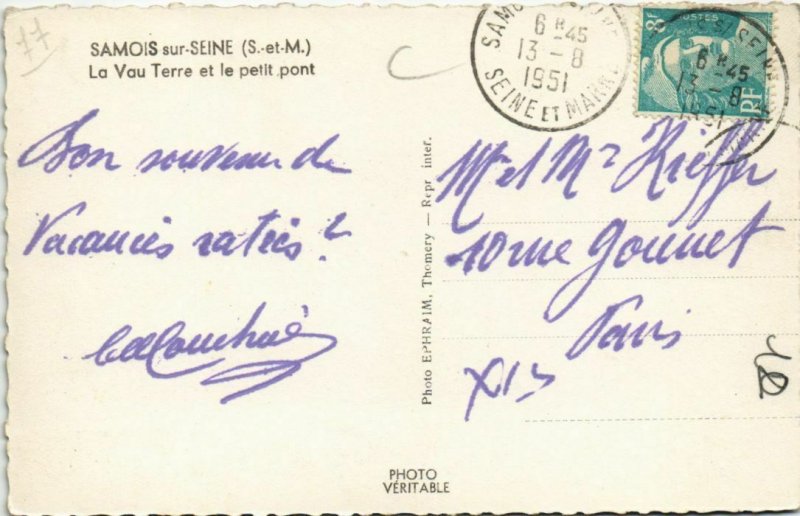 77
SAMOIS sur-SEINE (S.-et-M.)
La Vau Terre et le petit pont
Bon souvenir de
Vacances ratées?
Photo EPHRAIM, Thomery — Repr inter.
PHOTO
VÉRITABLE
6 H 45
13 - 8
1951
SEINE ET MARNE
8F
POSTES
RF
6 H 45
13 - 8
1951
Mme et Mr Kieffer
10 rue Gonnet
Paris
XIe